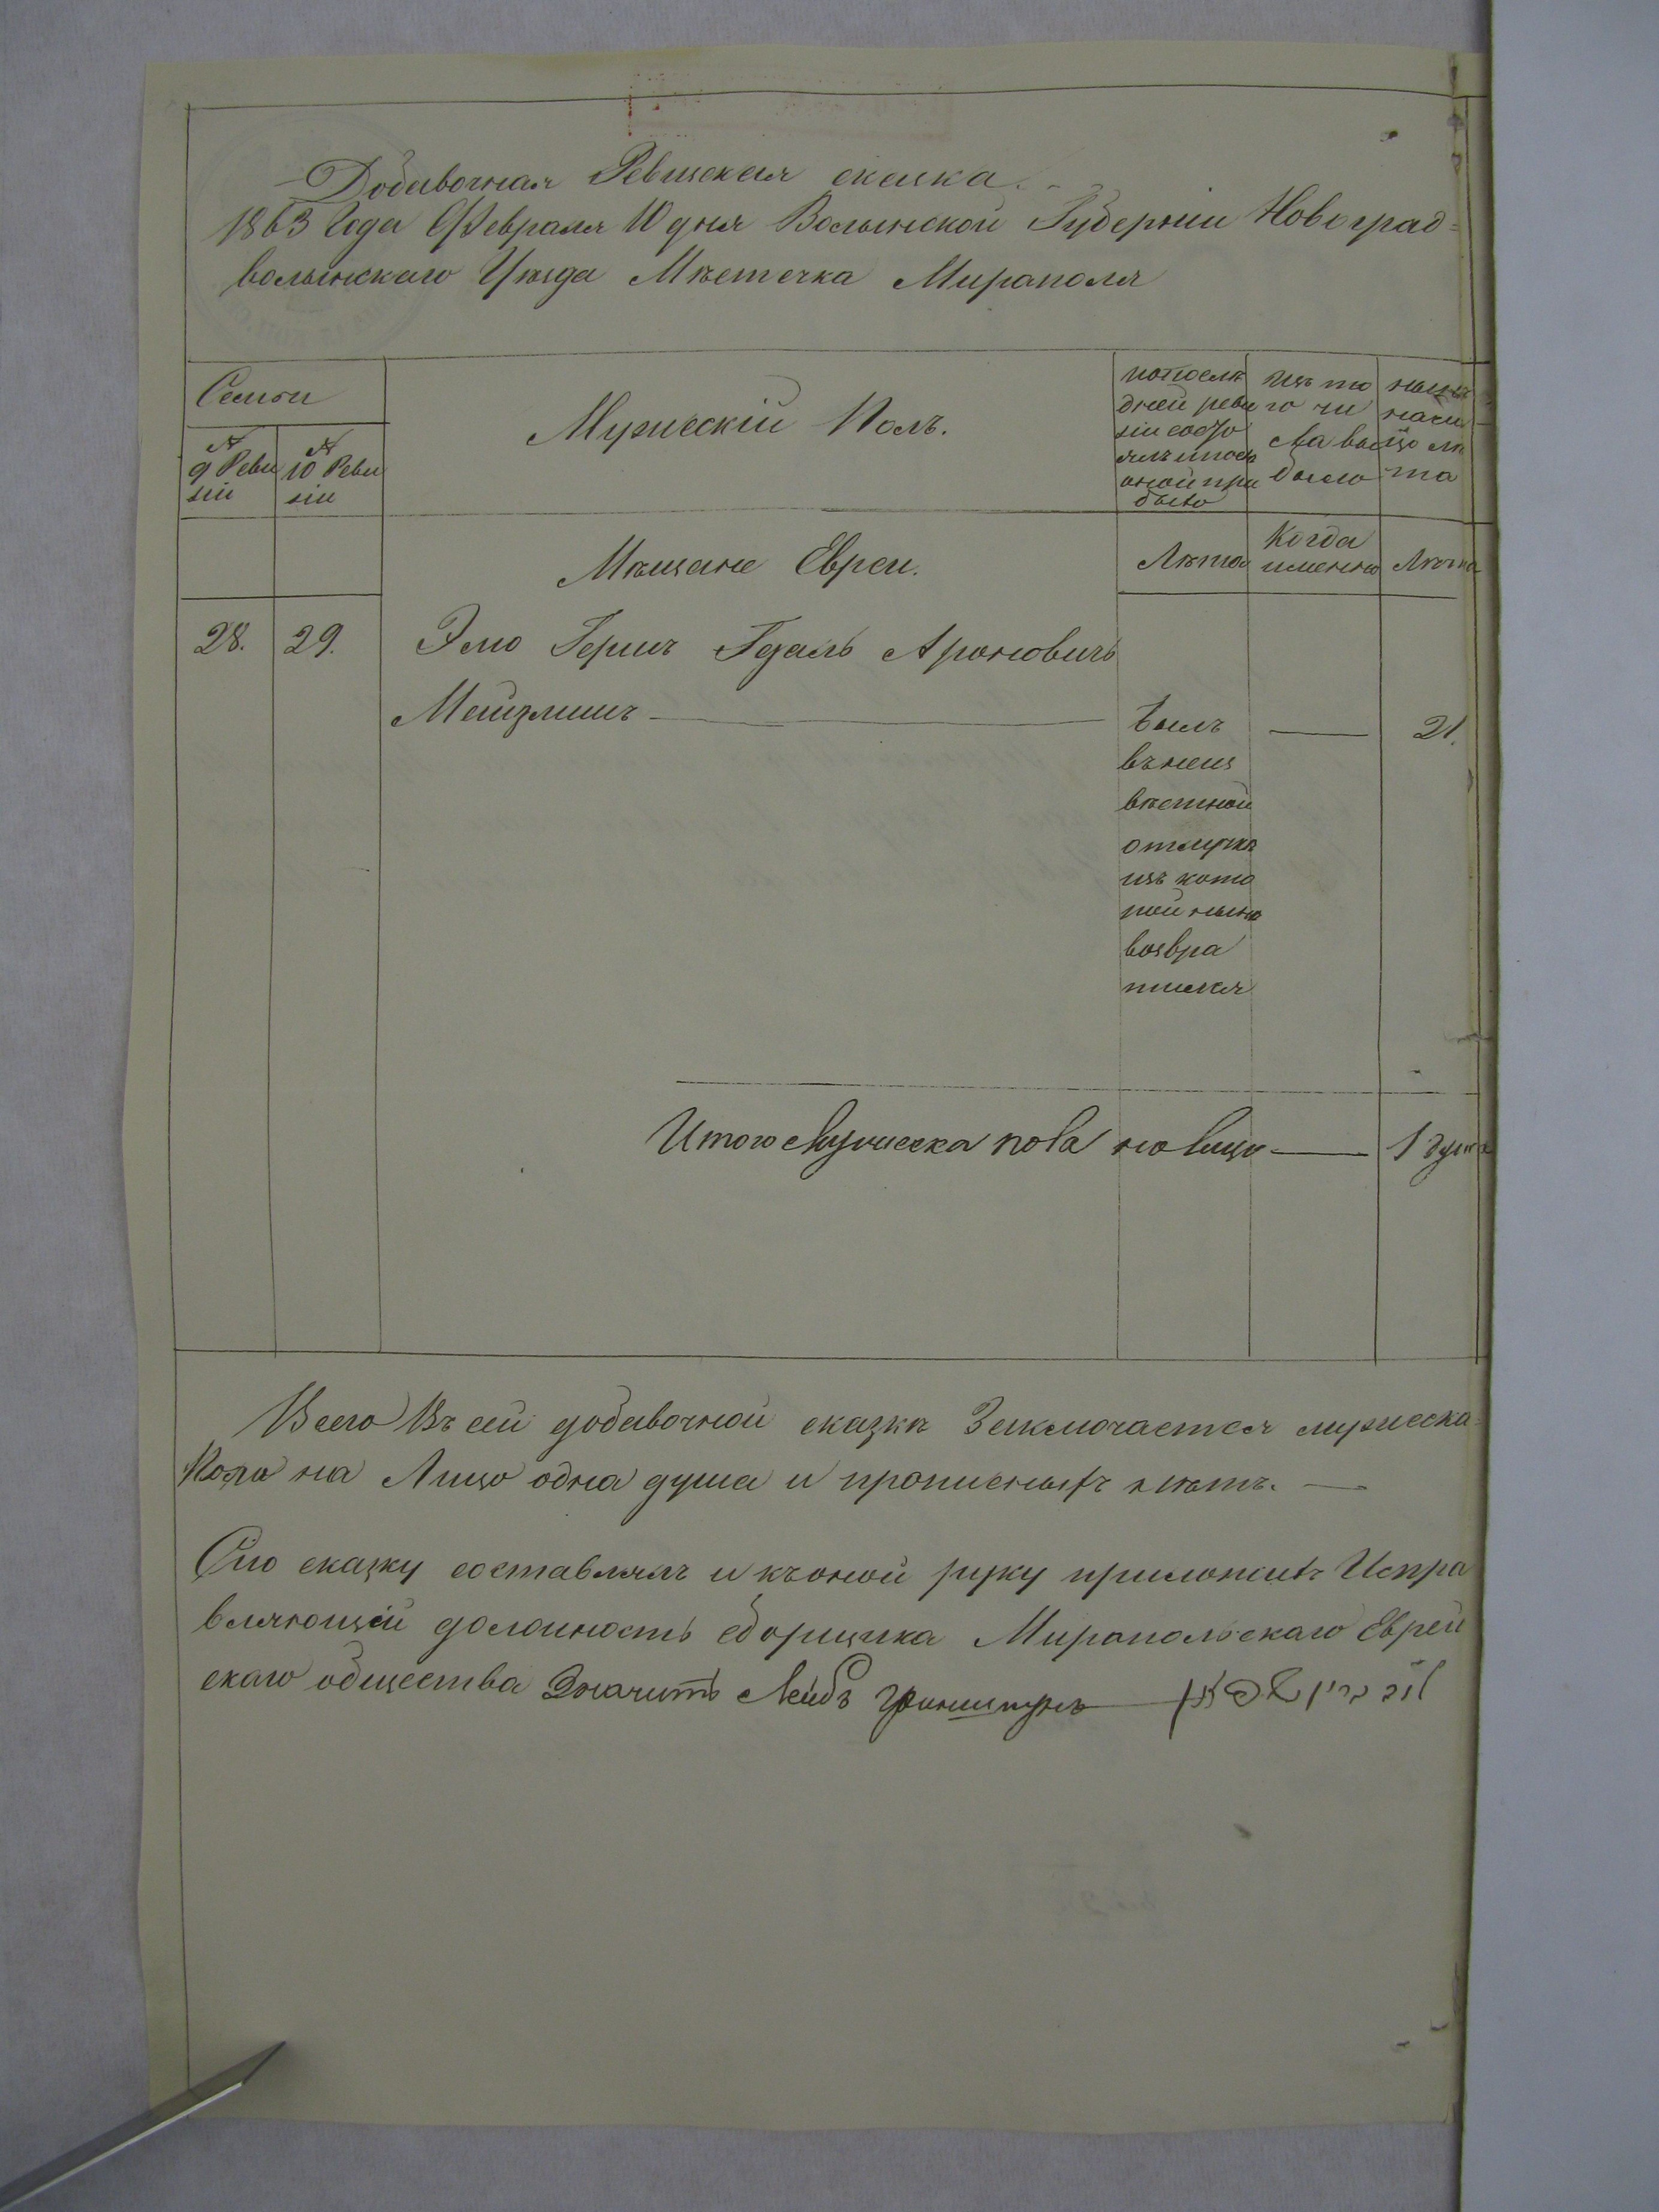 Добавочная Ревизская сказка.
1863 Года Февраля 10 дня Волынской Губерніи Новоград=
волынскаго Уѣзда Мѣстечка Мираполя
Семьи
№ 9 Реви
зіи
№ 10 Реви
зіи
Мужескій Полъ.
изъ то
го чи
сла вы
было
нынѣ
нали
цо лѣ
та
Мѣщане Евреи.
Лѣта
Когда
именно
Лѣта
28. 29. Эмо Гершъ Гдаль Ароновичъ
Мейзлишъ —
былъ
въ неиз
вѣстной
отлучкѣ
изъ кото
рой нынѣ
возвра
тился
— 21.
Итого мужеска пола на лицо — 1 душа
Всего Въ сей добавочной сказкѣ Заключается мужеска=
Пола на Лицо одна душа и прописныхъ нѣтъ. —
Сію сказку составлялъ и къ оной руку приложилъ Испра
вляющій должность сборщика Миропольскаго Еврей
скаго общества Значитъ Лейбъ